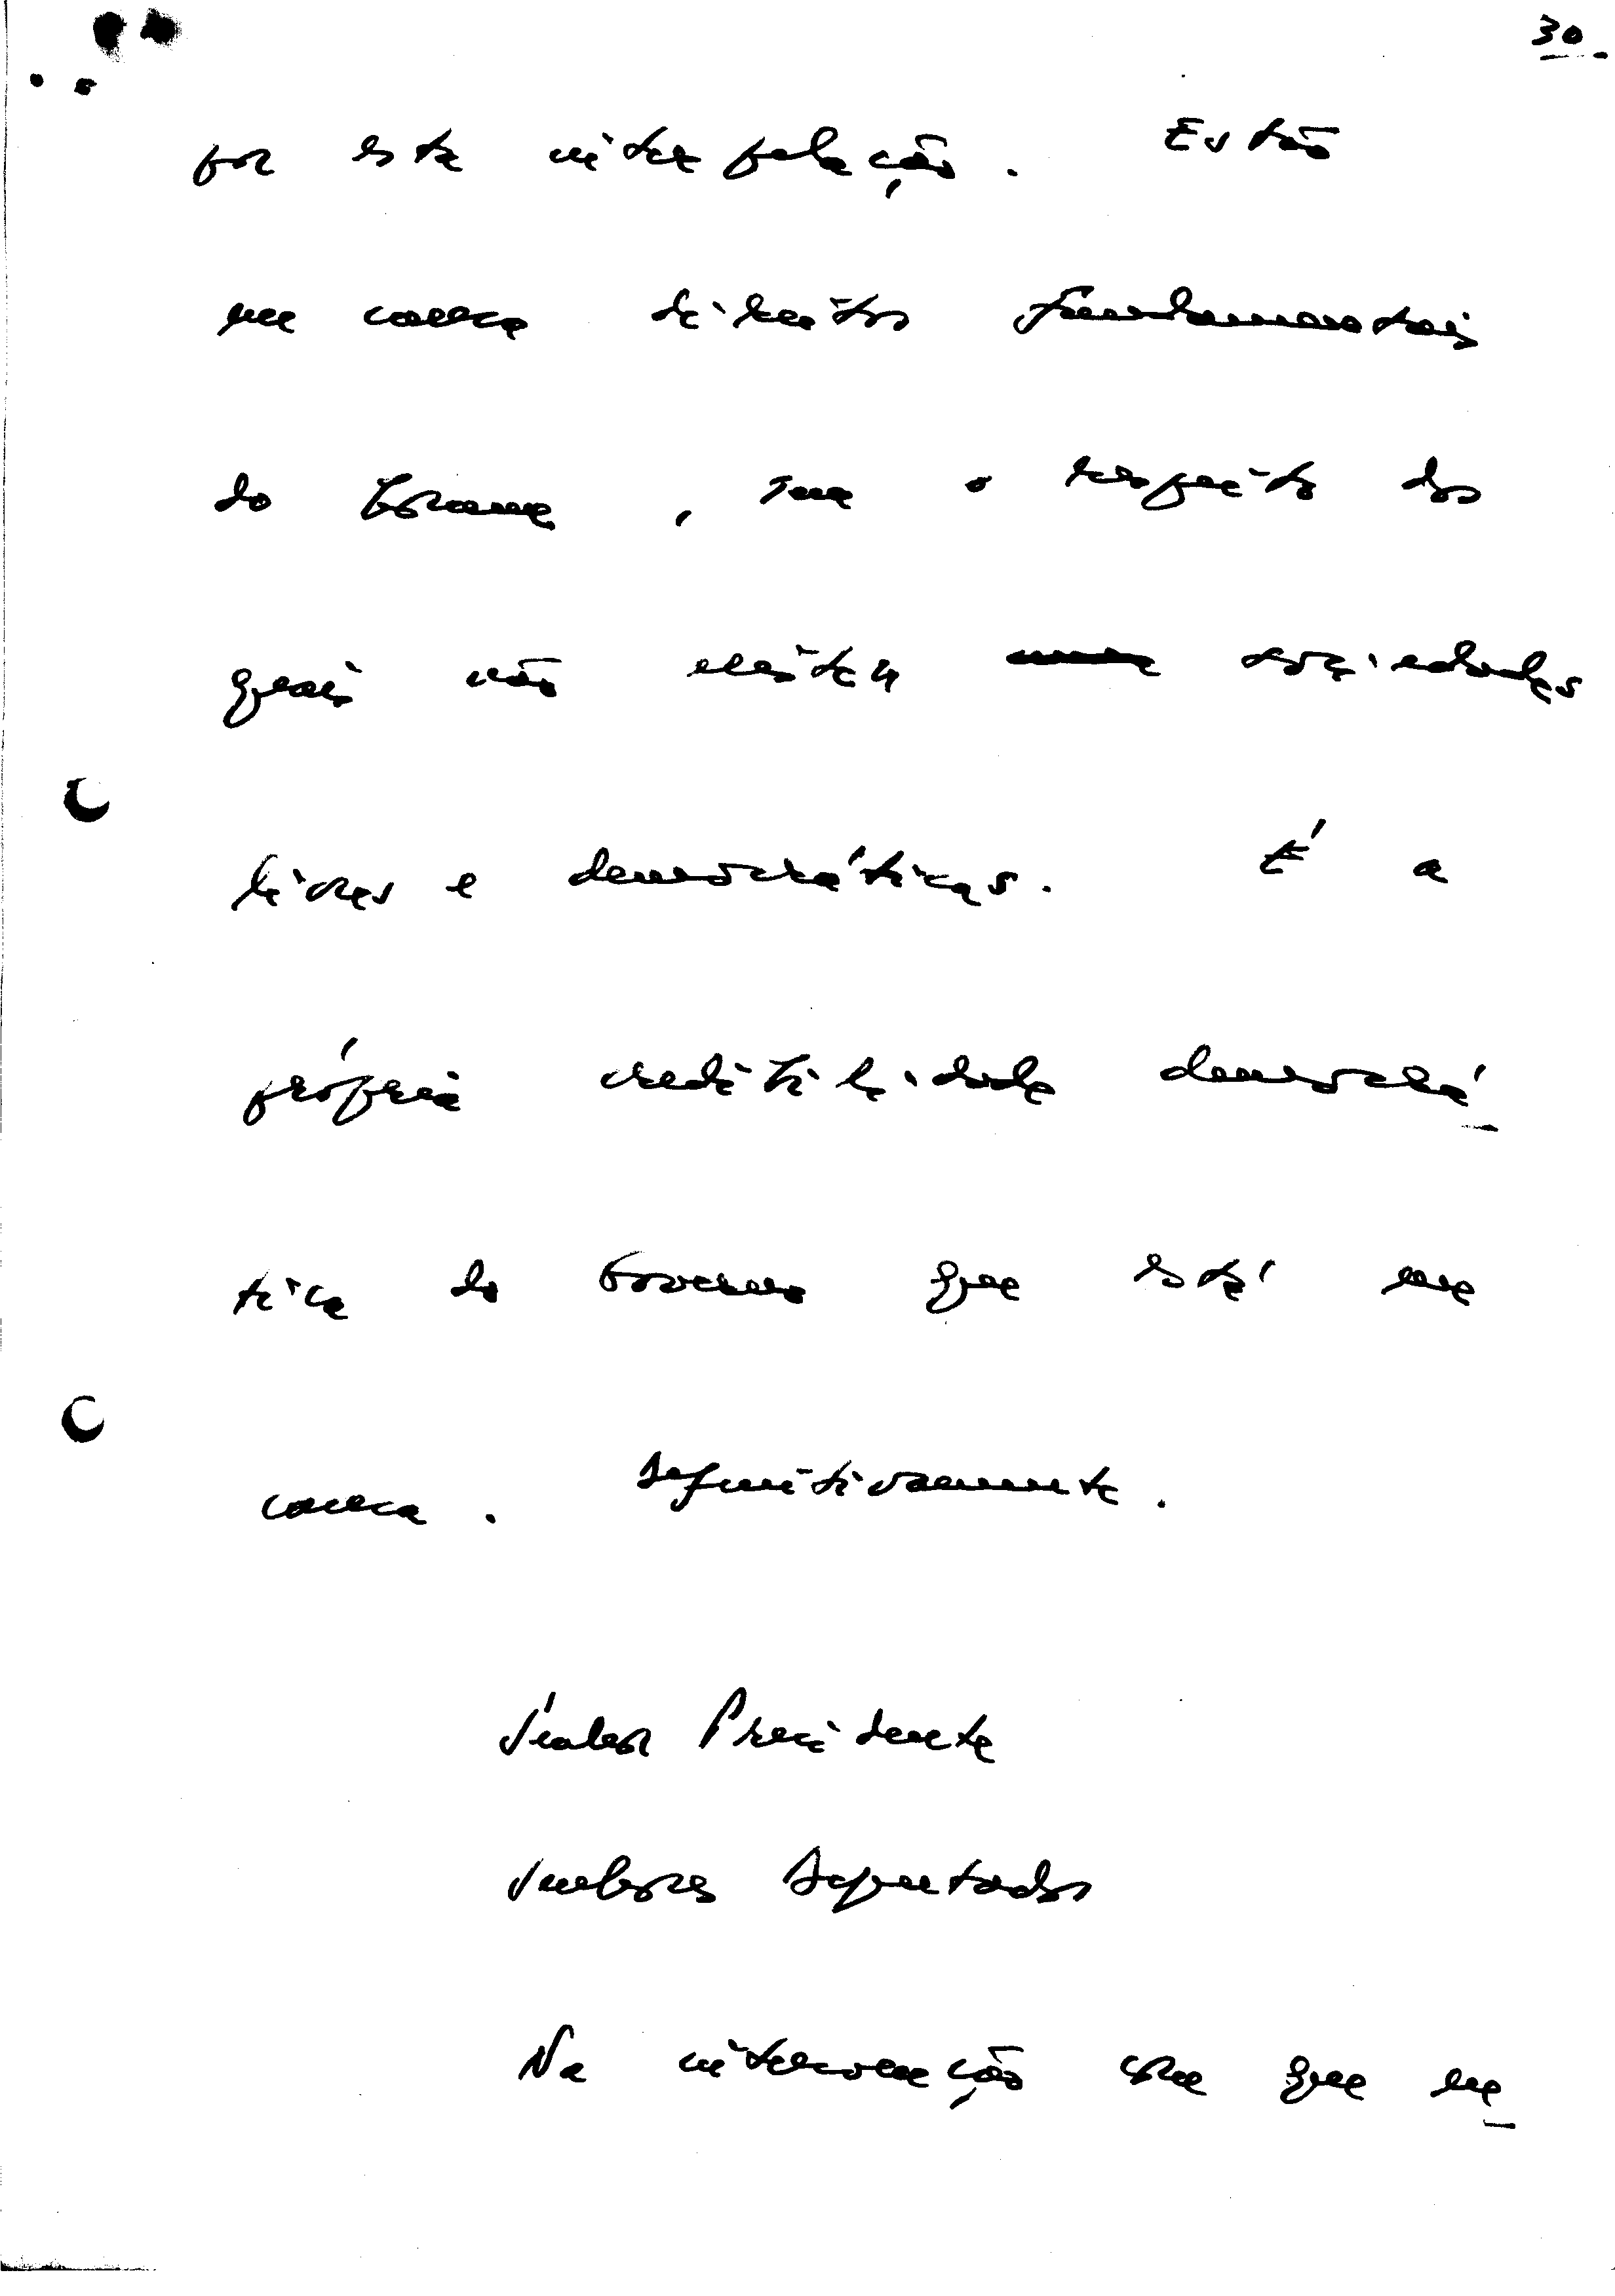 30.
por esta interpelação. Estão
em causa direitos fundamentais
do Homem, sem o respeito dos
quais não existem sociedades
livres e democráticas. É a
própria credibilidade democrá-
tica do Governo que está em
causa. Definitivamente.
Senhor Presidente
Senhores Deputados
Na intervenção com que en-